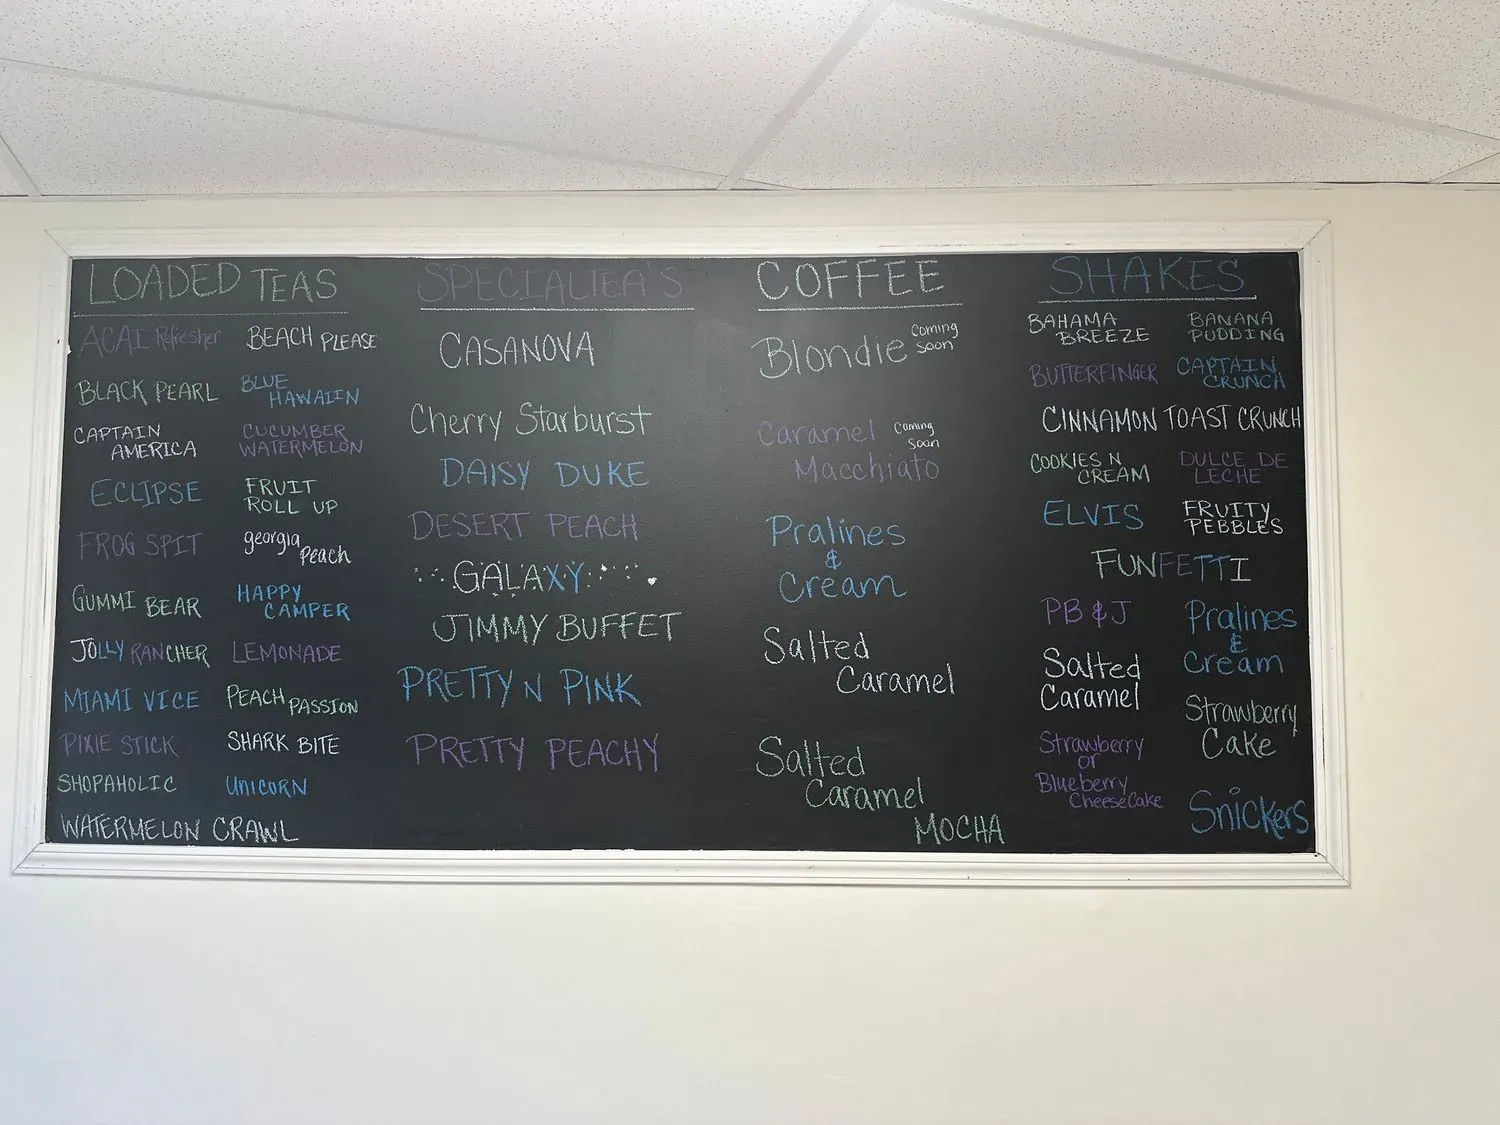 LOADED TEAS
ACAI Refresher
BEACH PLEASE
BLACK PEARL
BLUE
HAWAIIN
CAPTAIN
AMERICA
CUCUMBER
WATERMELON
ECLIPSE
FRUIT
ROLL UP
FROG SPIT
georgia
Peach
GUMMI BEAR
HAPPY
CAMPER
JOLLY RANCHER
LEMONADE
MIAMI VICE
PEACH PASSION
PIXIE STICK
SHARK BITE
SHOPAHOLIC
UNICORN
WATERMELON CRAWL
SPECIALTEA'S
CASANOVA
Cherry Starburst
DAISY DUKE
DESERT PEACH
GALAXY
JIMMY BUFFET
PRETTY N PINK
PRETTY PEACHY
COFFEE
Blondie Coming
soon
Caramel Coming
Soon
Macchiato
Pralines
&
Cream
Salted
Caramel
Salted
Caramel
MOCHA
SHAKES
BAHAMA
BREEZE
BANANA
PUDDING
BUTTERFINGER
CAPTAIN
CRUNCH
CINNAMON TOAST CRUNCH
COOKIES N
CREAM
DULCE DE
LECHE
ELVIS
FRUITY
PEBBLES
FUNFETTI
PB & J
Pralines
&
Cream
Salted
Caramel
Strawberry
Cake
Strawberry
or
Blueberry
CheeseCake
Snickers